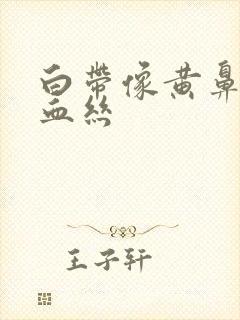 白带像黄鼻
血丝
王子轩